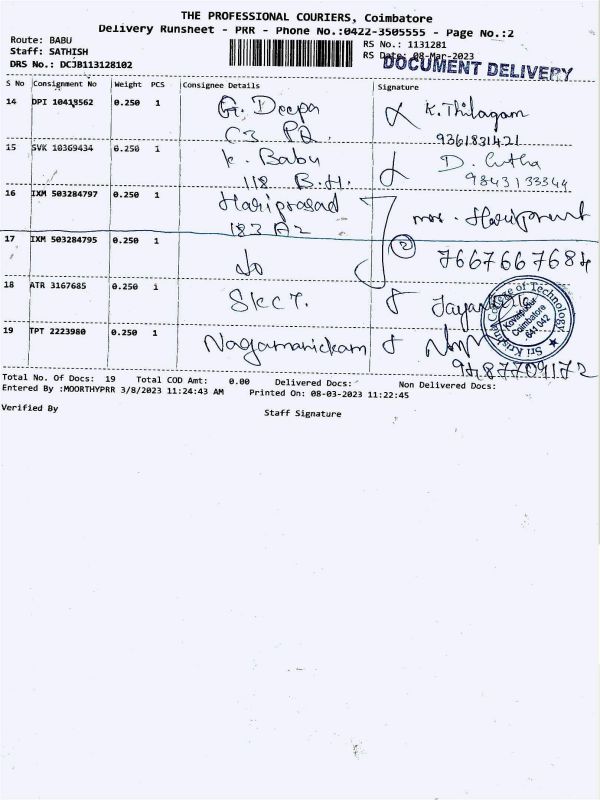 THE PROFESSIONAL COURIERS, Coimbatore
Delivery Runsheet - PRR - Phone No.:0422-3505555 - Page No.:2
Route: BABU
Staff: SATHISH
DRS No.: DCJB113128102
RS No.: 1131281
RS Date: 08-Mar-2023
DOCUMENT DELIVERY
S No Consignment No Weight PCS Consignee Details Signature
14 DPI 10418562 0.250 1 G. Deepa K. Thilagam
C3 PQ. 9361831421
15 SVK 10369434 0.250 1 K. Babu D. Cutha
118 B.H. 9843133344
16 IXM 503284797 0.250 1 Hariprasad mrs. Hariprasad
183 A2
17 IXM 503284795 0.250 1 do 2 7667667684
18 ATR 3167685 0.250 1 SKCT.
Sri Krishna College of Technology
Kovaipudur
Coimbatore
641 042
19 TPT 2223980 0.250 1 Nagamanickam
9487709172
Total No. Of Docs: 19 Total COD Amt: 0.00 Delivered Docs: Non Delivered Docs:
Entered By :MOORTHYPRR 3/8/2023 11:24:43 AM Printed On: 08-03-2023 11:22:45
Verified By Staff Signature